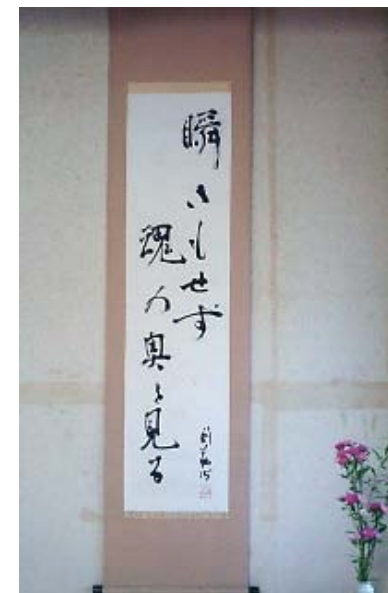 瞬きもせず
魂の奥を見る